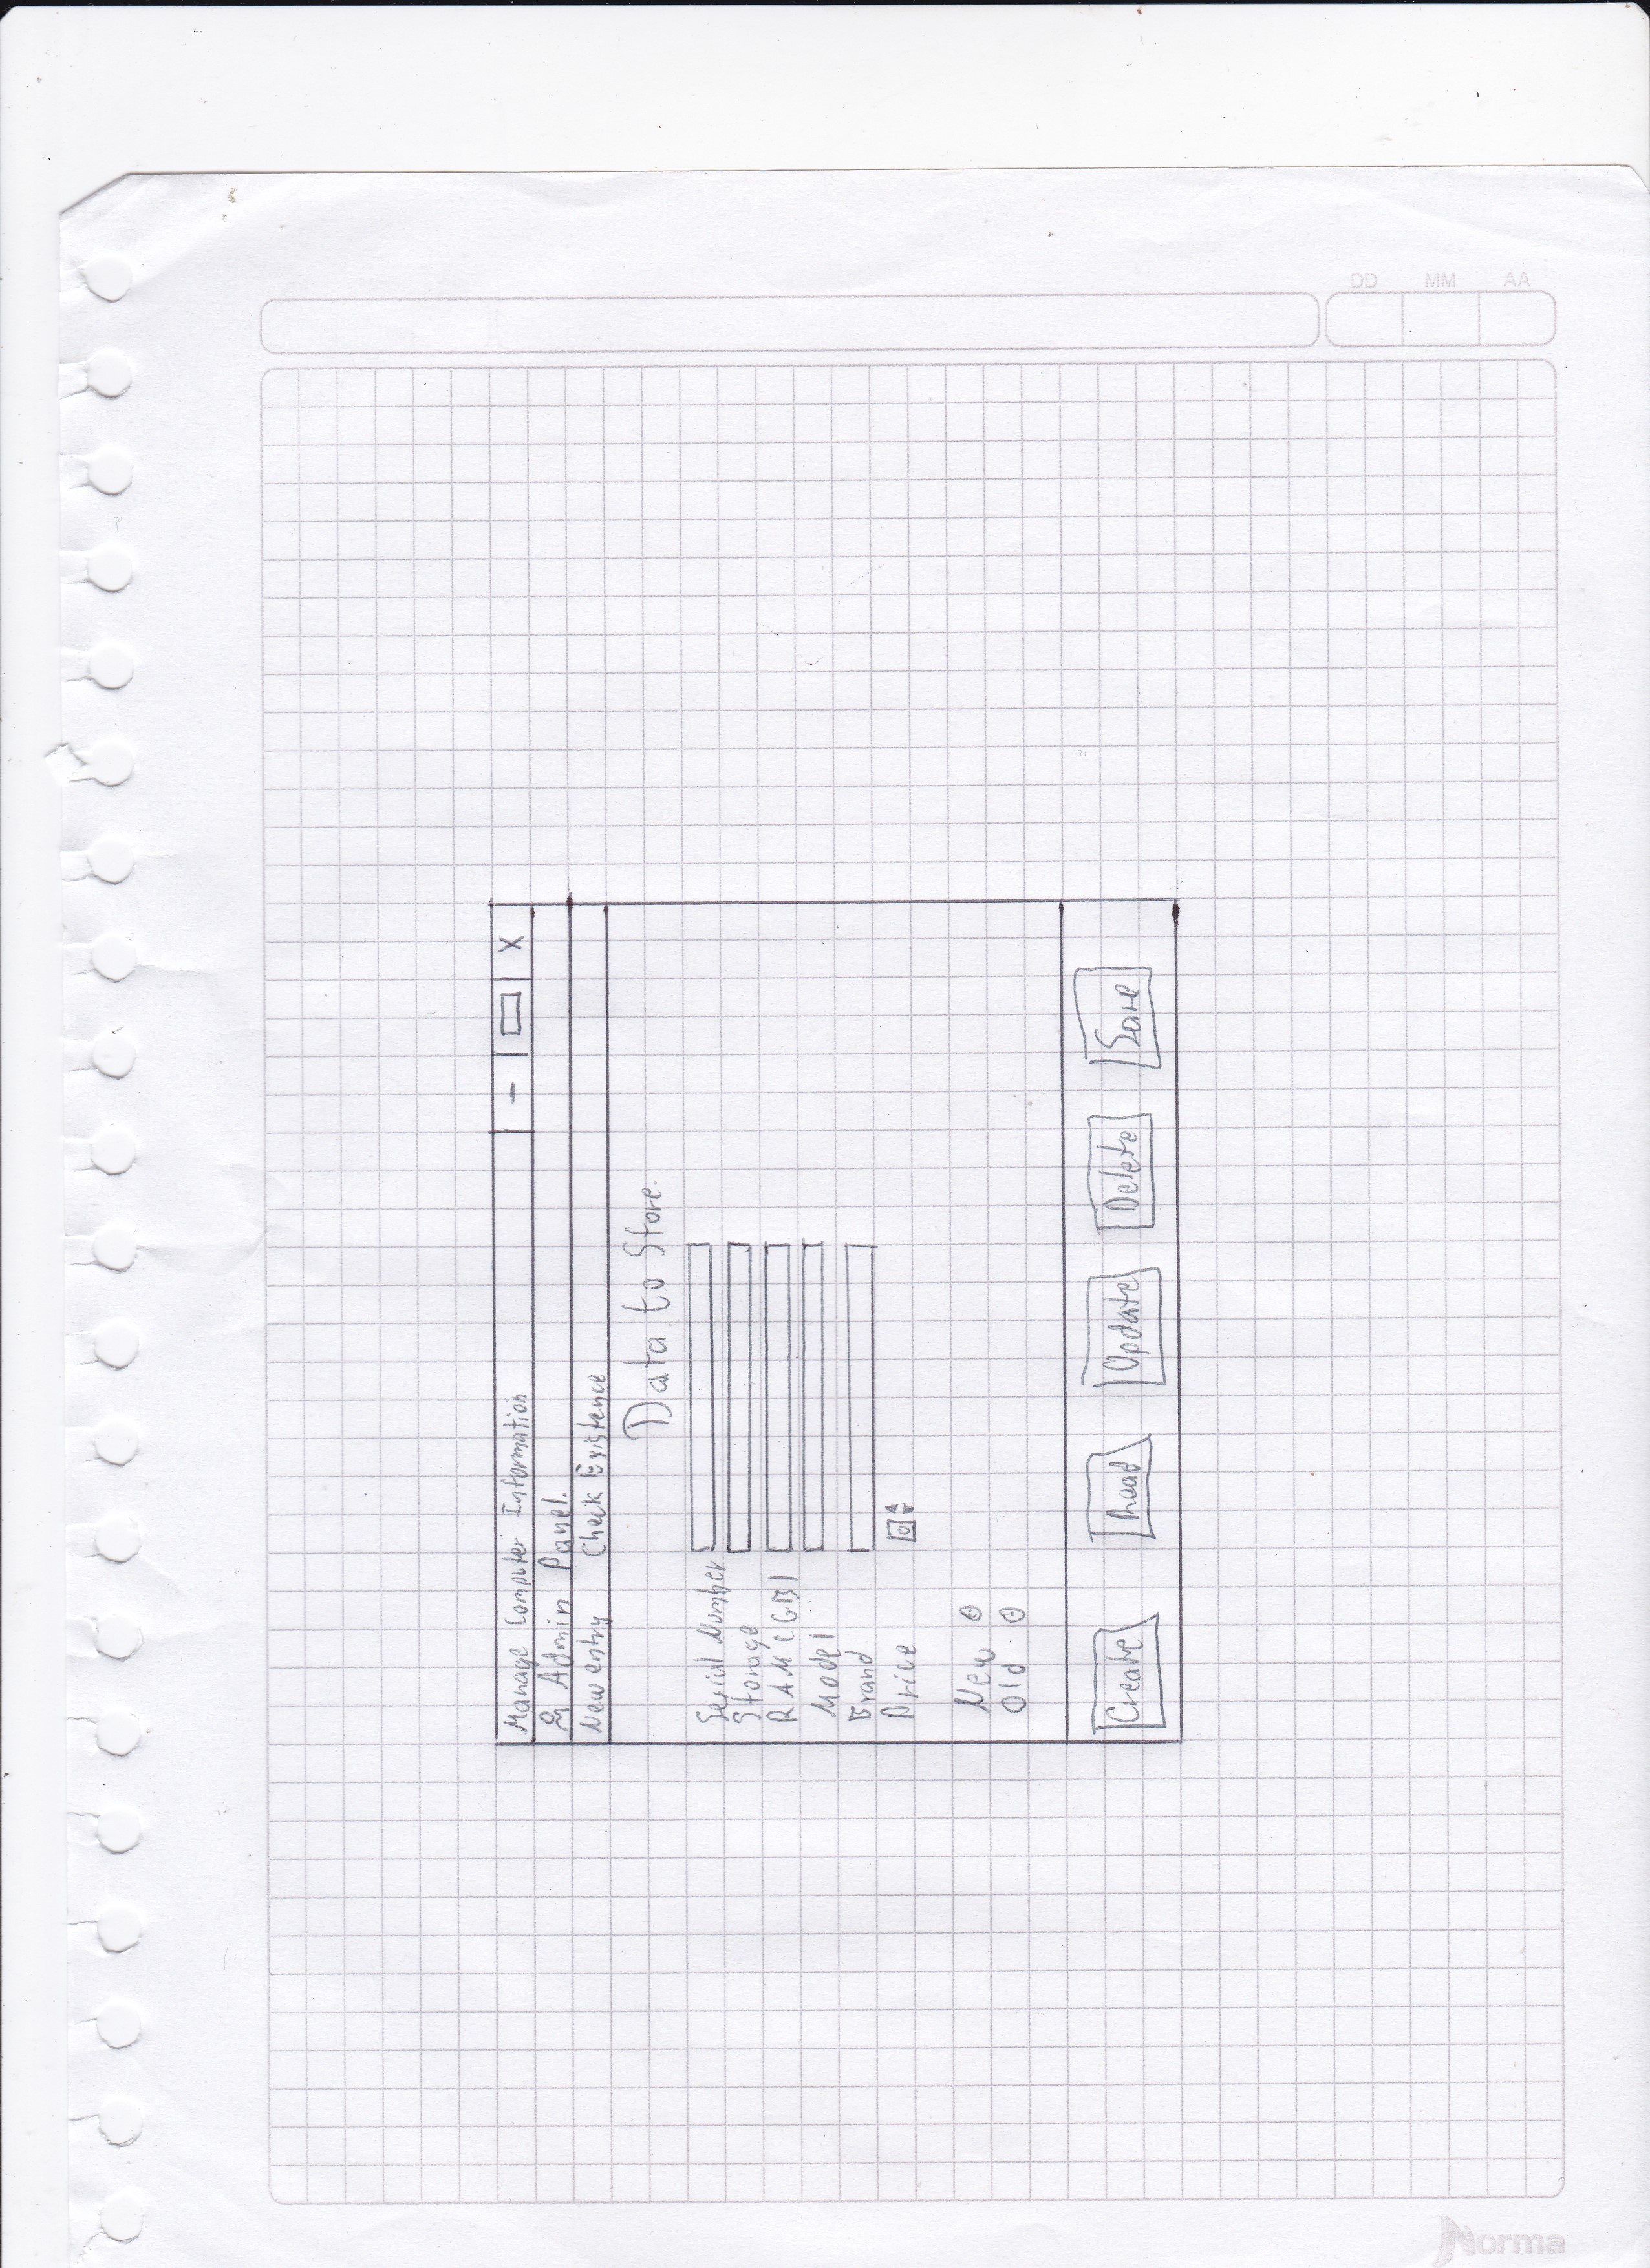 DD MM AA
Manage Computer Information - X
Admin Panel.
New entry Check Existence
Data to Store.
Serial Number
Storage
RAM (GB)
Model
Brand
Price 0
New
Old
Create Read Update Delete Save
Norma